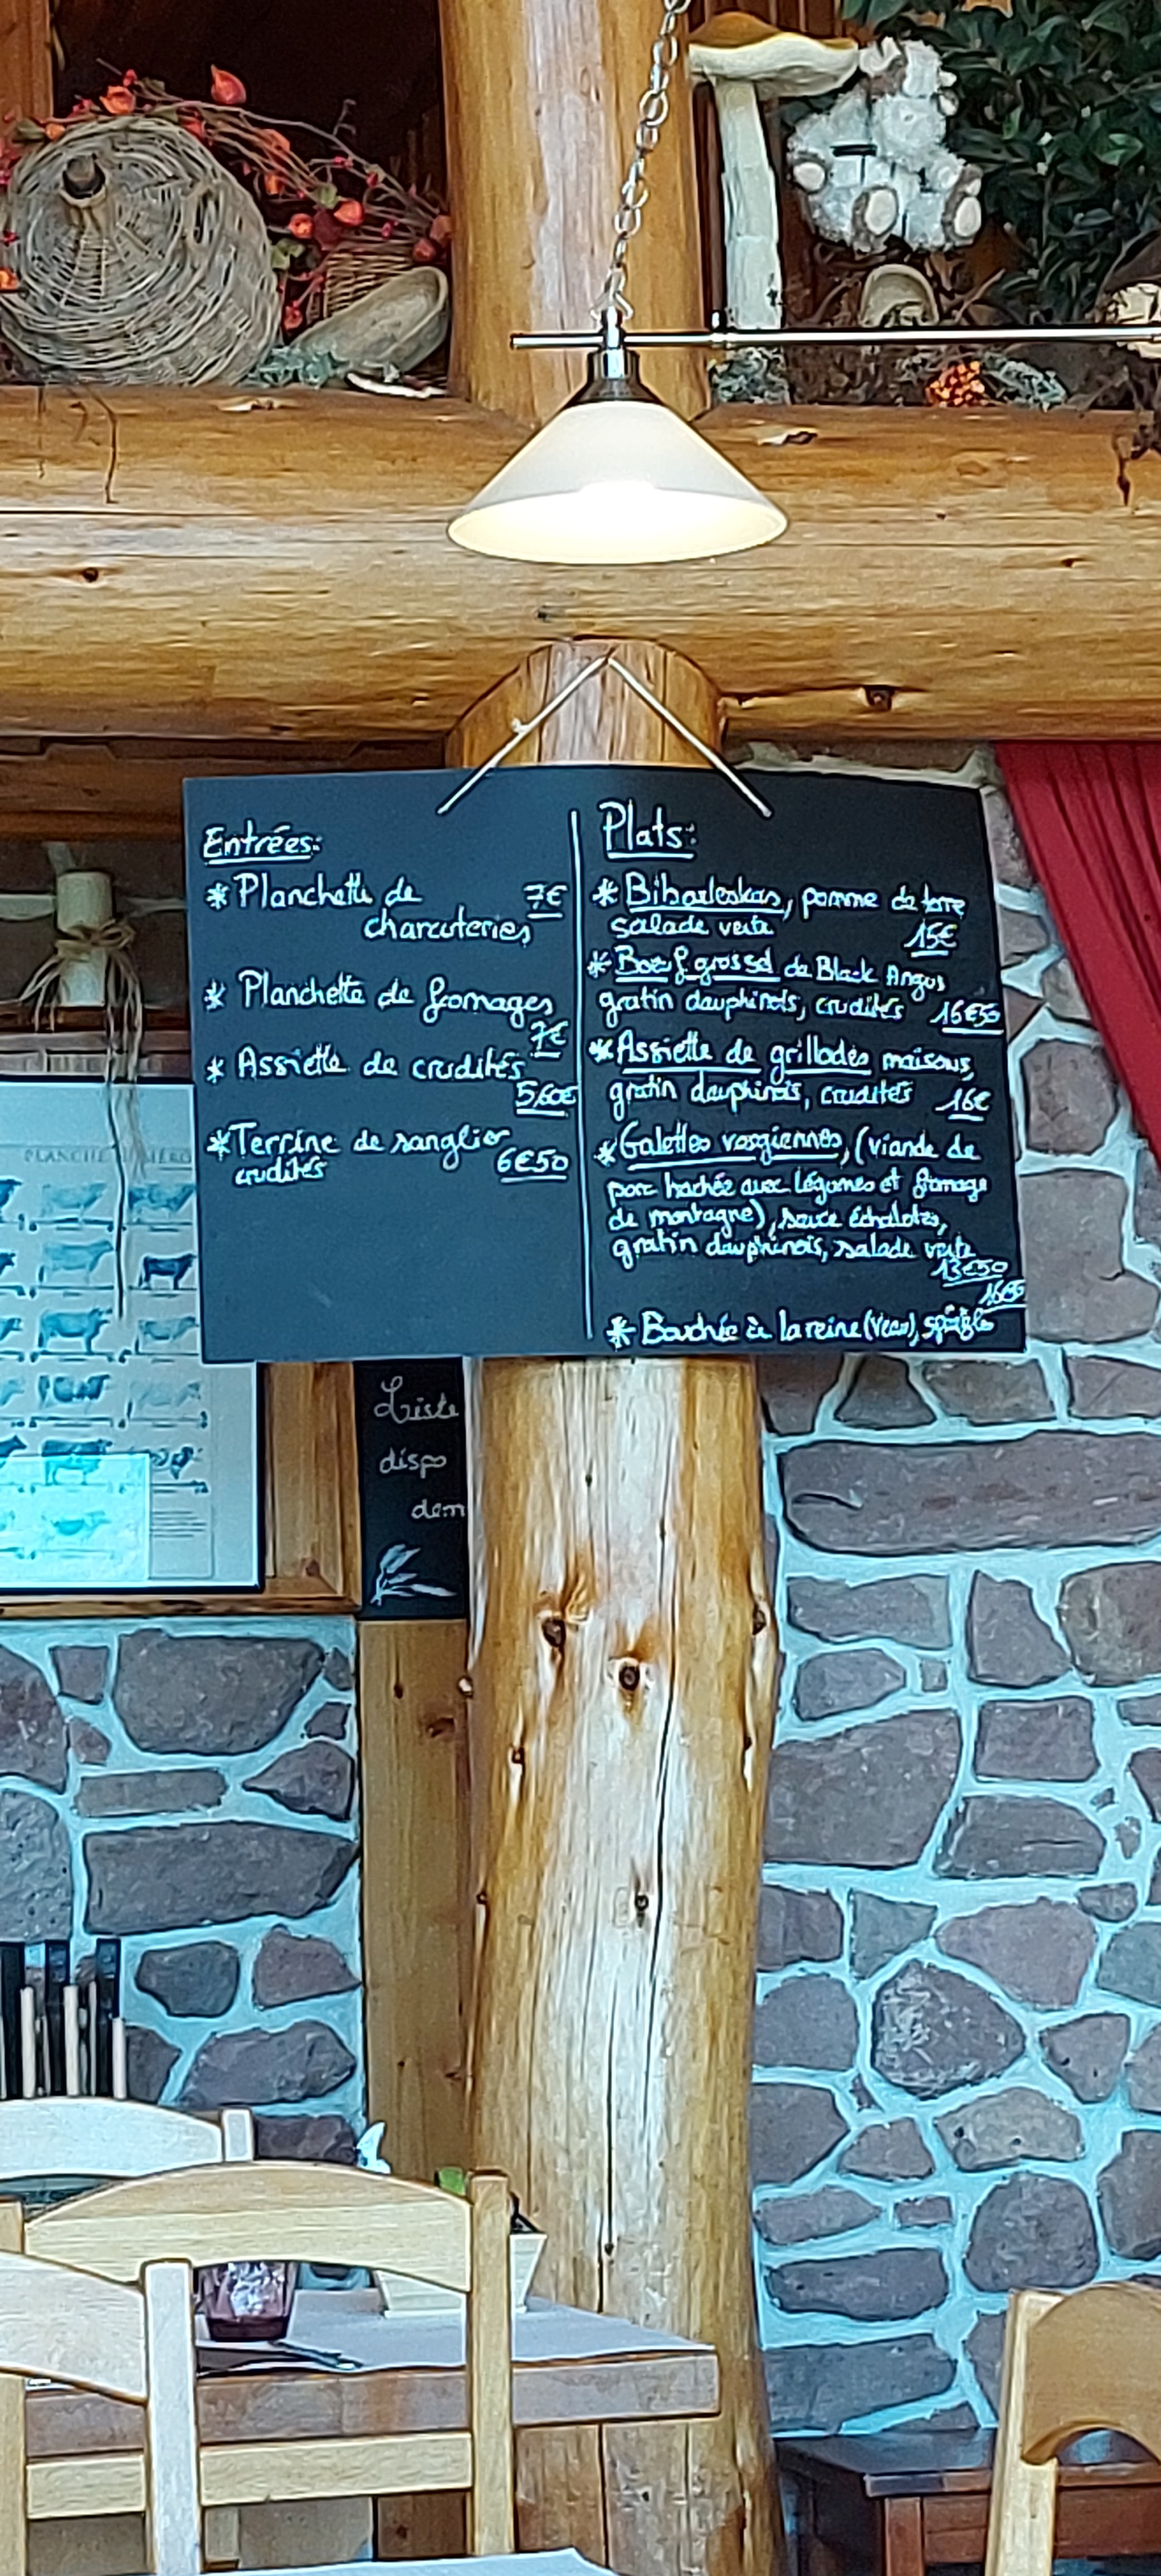 Entrées:
* Planchette de 7€
charcuteries
* Planchette de fromages
7€
* Assiette de crudités
5,60€
* Terrine de sanglier
crudités 6€50
Plats:
* Bibaeleskas, pomme de terre
salade verte 15€
* Boeuf grossel de Black Angus
gratin dauphinois, crudités 16€50
* Assiette de grillades maisons,
gratin dauphinois, crudités 16€
* Galettes vosgiennes, (viande de
porc hachée aux légumes et fromage
de montagne), sauce échalotes,
gratin dauphinois, salade verte
13€50
* Bouchée à la reine (veau), spätzle
Liste
dispo
dem